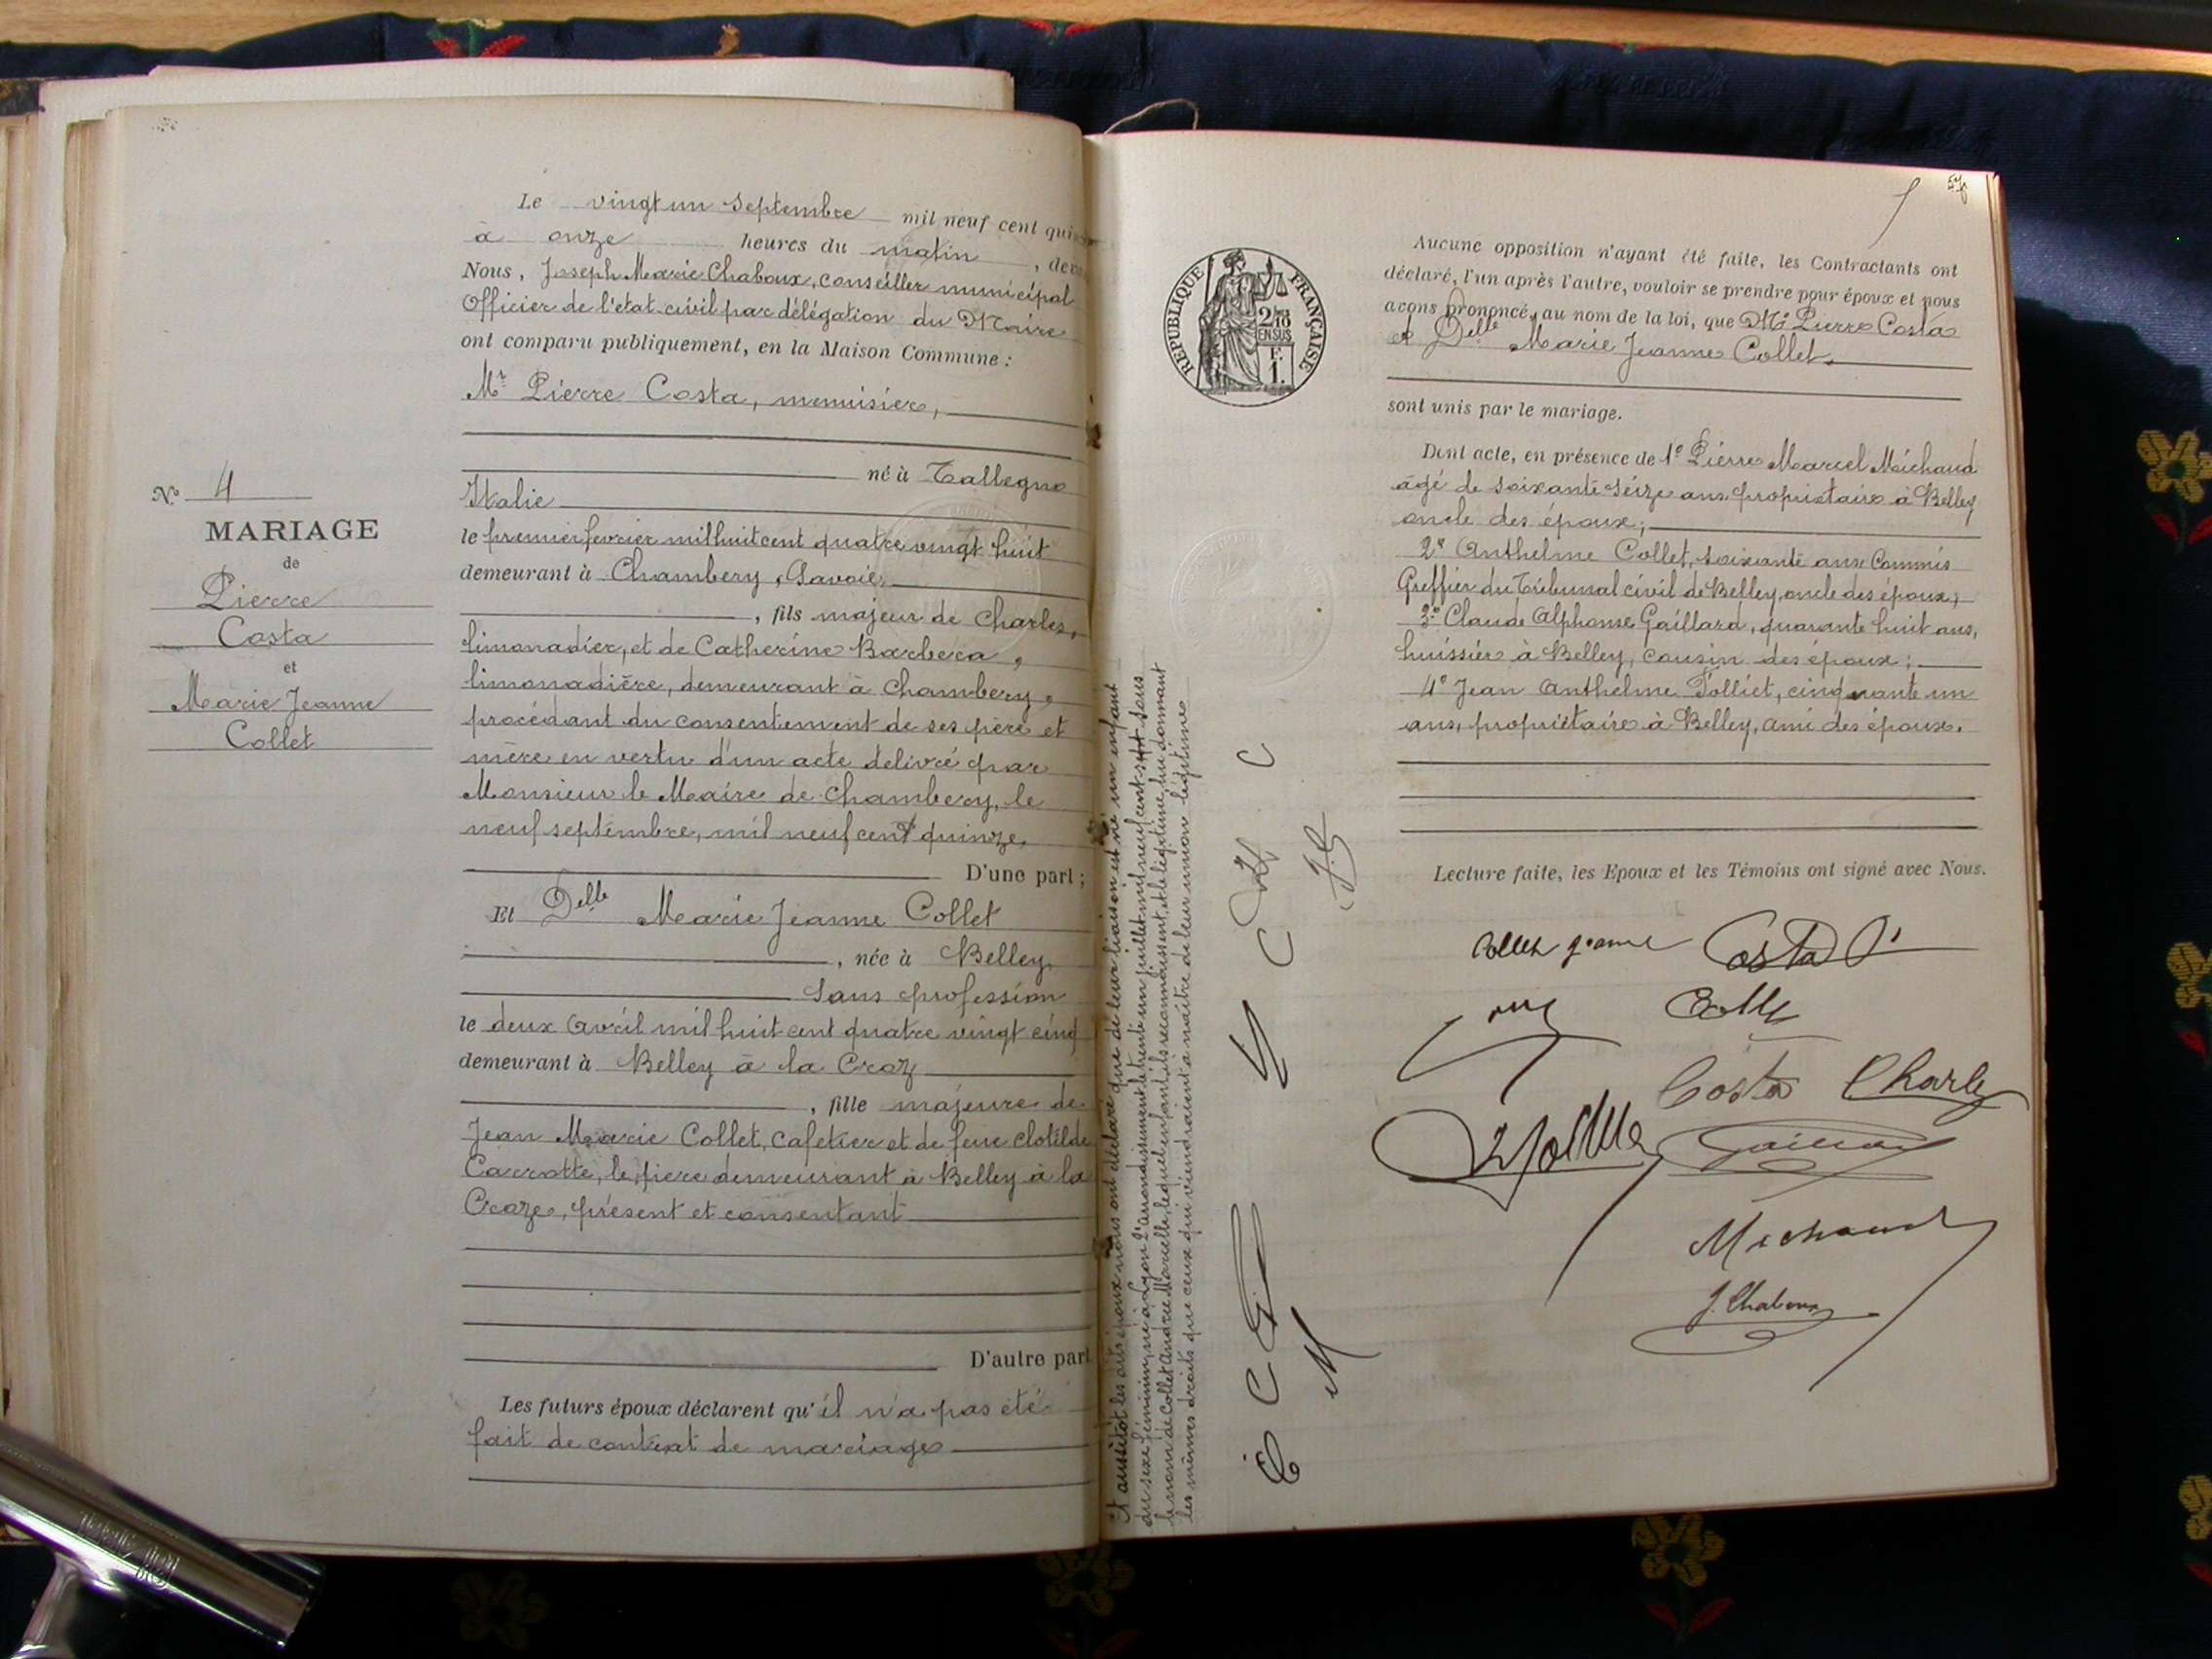 Le vingt un Septembre mil neuf cent
à onze heures du matin
Nous, Joseph Marie Chaboux, conseiller municipal
Officier de l'etat civil par délégation du Maire
ont comparu publiquement, en la Maison Commune :
Mr Pierre Costa, menuisier,
né à Tallegno
Italie
le premier fevrier mil huit cent quatre vingt huit
demeurant à Chambery, Savoie,
, fils majeur de Charles,
limonadier, et de Catherine Barbera,
limonadière, demeurant à Chambery,
procédant du consentement de ses père et
mère en vertu d'un acte délivré par
Monsieur le Maire de Chambery, le
neuf septembre, mil neuf cent quinze,
D'une part ;
Et Delle Marie Jeanne Collet
, née à Belley,
Sans profession
le deux Avril mil huit cent quatre vingt cinq
demeurant à Belley à la Croz
, fille majeure de
Jean Marie Collet, cafetier et de feue Clotilde
Carrotte, le père demeurant à Belley à la
Croze, présent et consentant
D'autre part
Les futurs époux déclarent qu'il n'a pas été
fait de contrat de mariage
No 4
MARIAGE
de
Pierre
Costa
et
Marie Jeanne
Collet
Et aussitôt les dits époux nous ont déclaré que de leur liaison est né un enfant
du sexe féminin, né à Lyon 2e arrondissement le trente un juillet mil neuf cent sept sous
le nom de Collet Andrée Marcelle, lequel enfant ils reconnaissent et le légitime, lui donnant
les mêmes droits que ceux qui viendraient à naître de leur union légitime
REPUBLIQUE FRANÇAISE
2/10
EN SUS
F.
1.
Aucune opposition n'ayant été faite, les Contractants ont
déclaré, l'un après l'autre, vouloir se prendre pour époux et nous
avons prononcé, au nom de la loi, que Mr Pierre Costa
et Delle Marie Jeanne Collet,
sont unis par le mariage.
Dont acte, en présence de 1° Pierre Marcel Michaud
âgé de soixante seize ans, propriétaire à Belley
oncle des époux ;
2° Anthelme Collet, soixante ans Commis
Greffier du Tribunal civil de Belley, oncle des époux ;
3° Claude Alphonse Gaillard, quarante huit ans,
huissier à Belley, cousin des époux ;
4° Jean Anthelme Folliet, cinquante un
ans, propriétaire à Belley, ami des époux.
Lecture faite, les Epoux et les Témoins ont signé avec Nous.
Collet Jeanne Costa P
Collet
Costa Charles
Gaillard
Michaud
J. Chaboux